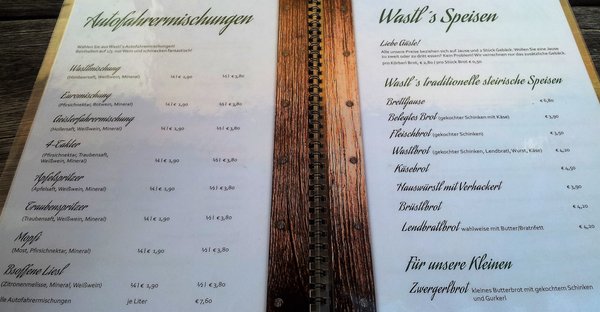 Autofahrermischungen
Wählen Sie aus Wastl's Autofahrermischungen!
Bestehend aus 1/3 nur Wein und schmecken fantastisch!
Wastlmischung
(Himbeersaft, Weißwein, Mineral) ¼ l € 1,90 ½ l € 3,80
Euromischung
(Pfirsichnektar, Rotwein, Mineral) ¼ l € 1,90 ½ l € 3,80
Geislerfahrermischung
(Hollersaft, Weißwein, Mineral) ¼ l € 1,90 ½ l € 3,80
4-Takter
(Pfirsichnektar, Traubensaft,
Weißwein, Mineral) ¼ l € 1,90 ½ l € 3,80
Apfelspritzer
(Apfelsaft, Weißwein, Mineral) ¼ l € 1,90 ½ l € 3,80
Traubenspritzer
(Traubensaft, Weißwein, Mineral) ¼ l € 1,90 ½ l € 3,80
Mopfi
(Most, Pfirsichnektar, Mineral) ¼ l € 1,90 ½ l € 3,80
Bsoffene Liesl
(Zitronenmelisse, Mineral, Weißwein) ¼ l € 1,90 ½ l € 3,80
lle Autofahrermischungen je Liter € 7,60
Wastl's Speisen
Liebe Gäste!
Alle unsere Preise beziehen sich auf Jause und 1 Stück Gebäck. Wollen Sie eine Jause
zu zweit oder zu dritt essen? Kein Problem! Wir verrechnen nur das zusätzliche Gebäck.
pro Körberl Brot, € 1,80 / pro Stück Brot € 0,50
Wastl's traditionelle steirische Speisen
Brettljause € 6,80
Belegtes Brot (gekochter Schinken, Käse) € 3,90
Fleischbrot (gekochter Schinken) € 3,50
Wastlbrot (gekochter Schinken, Lendbratl, Wurst, Käse) € 4,20
Käsebrot € 4,50
Hauswürstl mit Verhackert € 3,20
Brüstlbrot € 4,20
Lendbratlbrot wahlweise mit Butter/Bratnfett € 4,20
Für unsere Kleinen
Zwergerlbrot kleines Butterbrot mit gekochtem Schinken
und Gurkerl